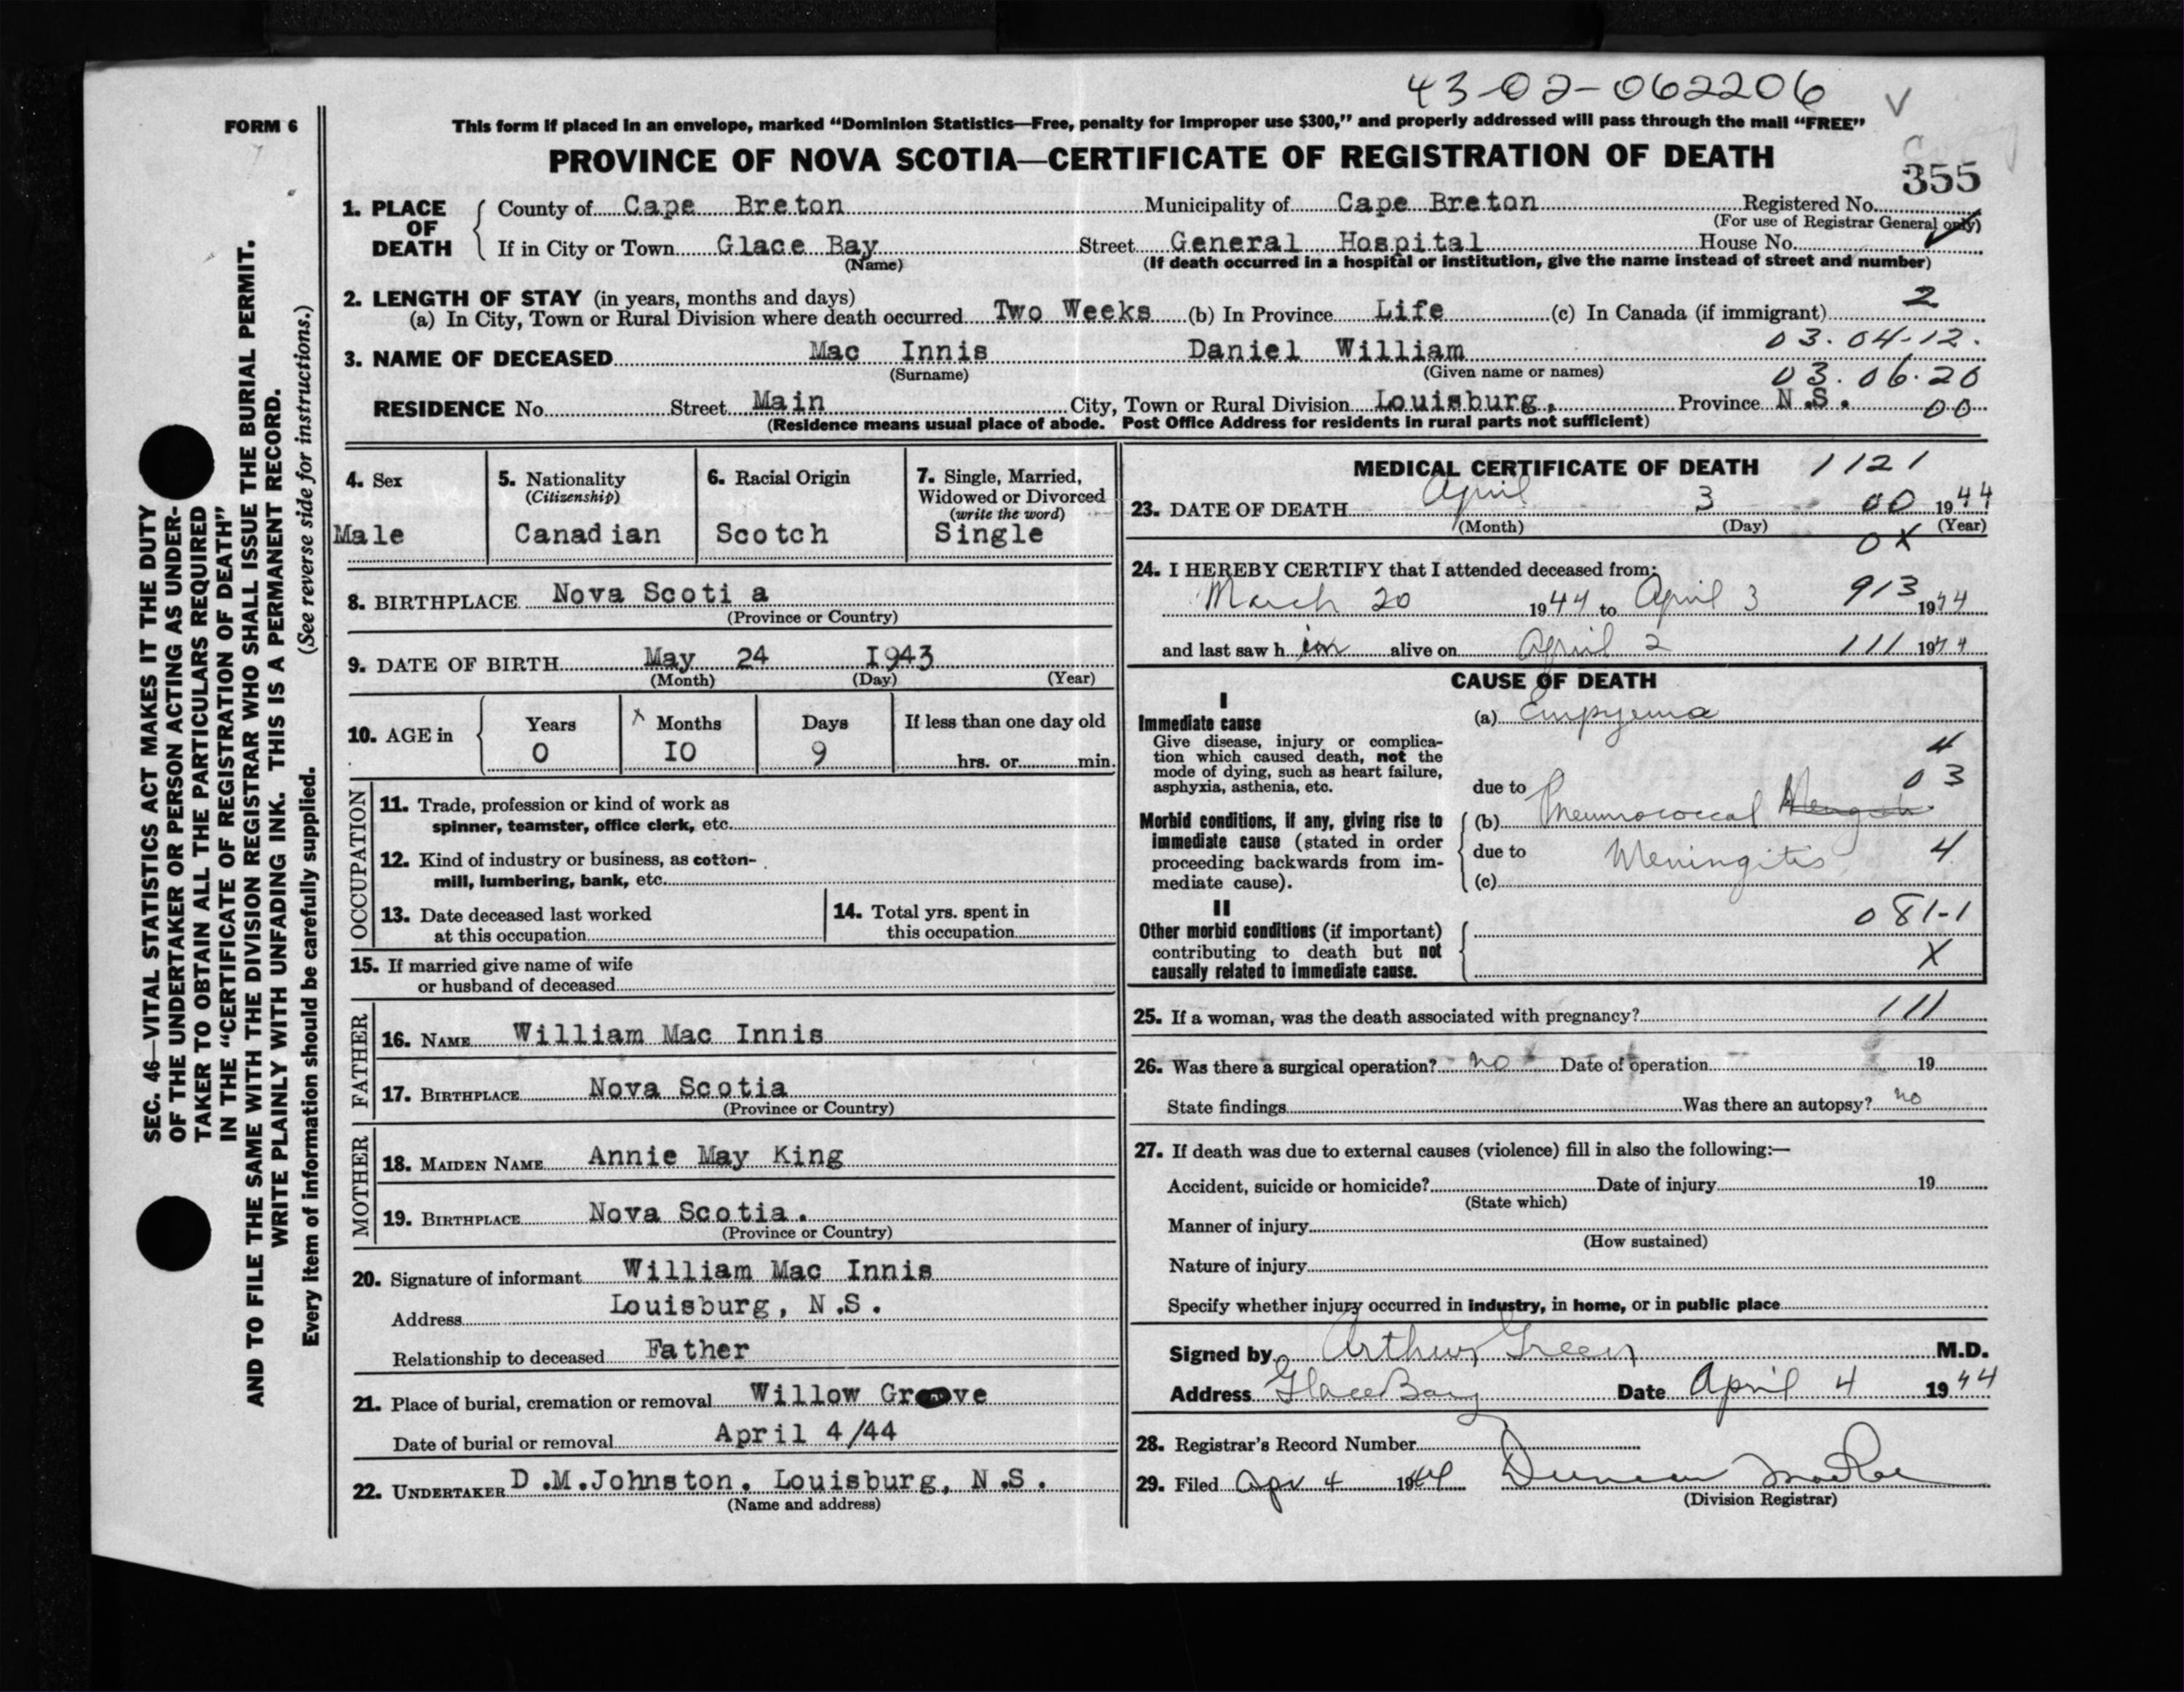 43-02-062206
FORM 6
This form if placed in an envelope, marked “Dominion Statistics—Free, penalty for improper use $300,” and properly addressed will pass through the mail “FREE”
PROVINCE OF NOVA SCOTIA—CERTIFICATE OF REGISTRATION OF DEATH
355
1. PLACE OF DEATH
County of Cape Breton Municipality of Cape Breton Registered No.
(For use of Registrar General only)
If in City or Town Glace Bay Street General Hospital House No.
(Name) (If death occurred in a hospital or institution, give the name instead of street and number)
2. LENGTH OF STAY (in years, months and days)
(a) In City, Town or Rural Division where death occurred Two Weeks (b) In Province Life (c) In Canada (if immigrant) 2
03.04-12.
3. NAME OF DECEASED Mac Innis Daniel William
(Surname) (Given name or names) 03.06.20
RESIDENCE No. Street Main City, Town or Rural Division Louisburg, Province N.S. 00
(Residence means usual place of abode. Post Office Address for residents in rural parts not sufficient)
4. Sex
Male
5. Nationality
(Citizenship)
Canadian
6. Racial Origin
Scotch
7. Single, Married,
Widowed or Divorced
(write the word)
Single
8. BIRTHPLACE Nova Scoti a
(Province or Country)
9. DATE OF BIRTH May 24 I943
(Month) (Day) (Year)
10. AGE in
Years Months Days If less than one day old
0 IO 9 hrs. or min.
OCCUPATION
11. Trade, profession or kind of work as
spinner, teamster, office clerk, etc.
12. Kind of industry or business, as cotton-
mill, lumbering, bank, etc.
13. Date deceased last worked
at this occupation
14. Total yrs. spent in
this occupation
15. If married give name of wife
or husband of deceased
FATHER
16. NAME William Mac Innis
17. BIRTHPLACE Nova Scotia
(Province or Country)
MOTHER
18. MAIDEN NAME Annie May King
19. BIRTHPLACE Nova Scotia.
(Province or Country)
20. Signature of informant William Mac Innis
Address Louisburg, N.S.
Relationship to deceased Father
21. Place of burial, cremation or removal Willow Grove
Date of burial or removal April 4/44
22. UNDERTAKER D.M.Johnston, Louisburg, N.S.
(Name and address)
MEDICAL CERTIFICATE OF DEATH 1121
23. DATE OF DEATH April 3 00 1944
(Month) (Day) (Year)
0X
24. I HEREBY CERTIFY that I attended deceased from:
March 20 1944 to April 3 913 1944
and last saw h im alive on April 2 111 1944
CAUSE OF DEATH
I
Immediate cause
Give disease, injury or complica-
tion which caused death, not the
mode of dying, such as heart failure,
asphyxia, asthenia, etc.
(a) Empyema
4
03
due to
Morbid conditions, if any, giving rise to
immediate cause (stated in order
proceeding backwards from im-
mediate cause).
(b) Pneumococcal
due to Meningitis 4
(c)
II
Other morbid conditions (if important)
contributing to death but not
causally related to immediate cause.
081-1
X
25. If a woman, was the death associated with pregnancy? 111
26. Was there a surgical operation? no Date of operation 19
State findings Was there an autopsy? no
27. If death was due to external causes (violence) fill in also the following:—
Accident, suicide or homicide? Date of injury 19
(State which)
Manner of injury
(How sustained)
Nature of injury
Specify whether injury occurred in industry, in home, or in public place
Signed by Arthur Green M.D.
Address Glace Bay Date April 4 1944
28. Registrar's Record Number
29. Filed Apr 4 1944 Duncan MacRae
(Division Registrar)
SEC. 46—VITAL STATISTICS ACT MAKES IT THE DUTY
OF THE UNDERTAKER OR PERSON ACTING AS UNDER-
TAKER TO OBTAIN ALL THE PARTICULARS REQUIRED
IN THE “CERTIFICATE OF REGISTRATION OF DEATH”
AND TO FILE THE SAME WITH THE DIVISION REGISTRAR WHO SHALL ISSUE THE BURIAL PERMIT.
WRITE PLAINLY WITH UNFADING INK. THIS IS A PERMANENT RECORD.
Every item of information should be carefully supplied. (See reverse side for instructions.)